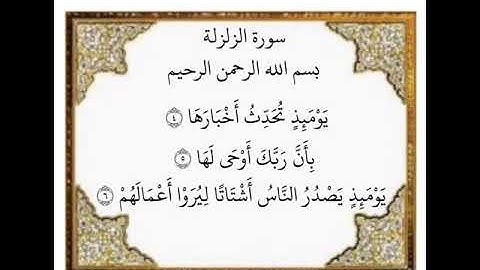 سورة الزلزلة
بسم الله الرحمن الرحيم
يَوْمَئِذٍ تُحَدِّثُ أَخْبَارَهَا ٤
بِأَنَّ رَبَّكَ أَوْحَى لَهَا ٥
يَوْمَئِذٍ يَصْدُرُ النَّاسُ أَشْتَاتًا لِيُرَوْا أَعْمَالَهُمْ ٦